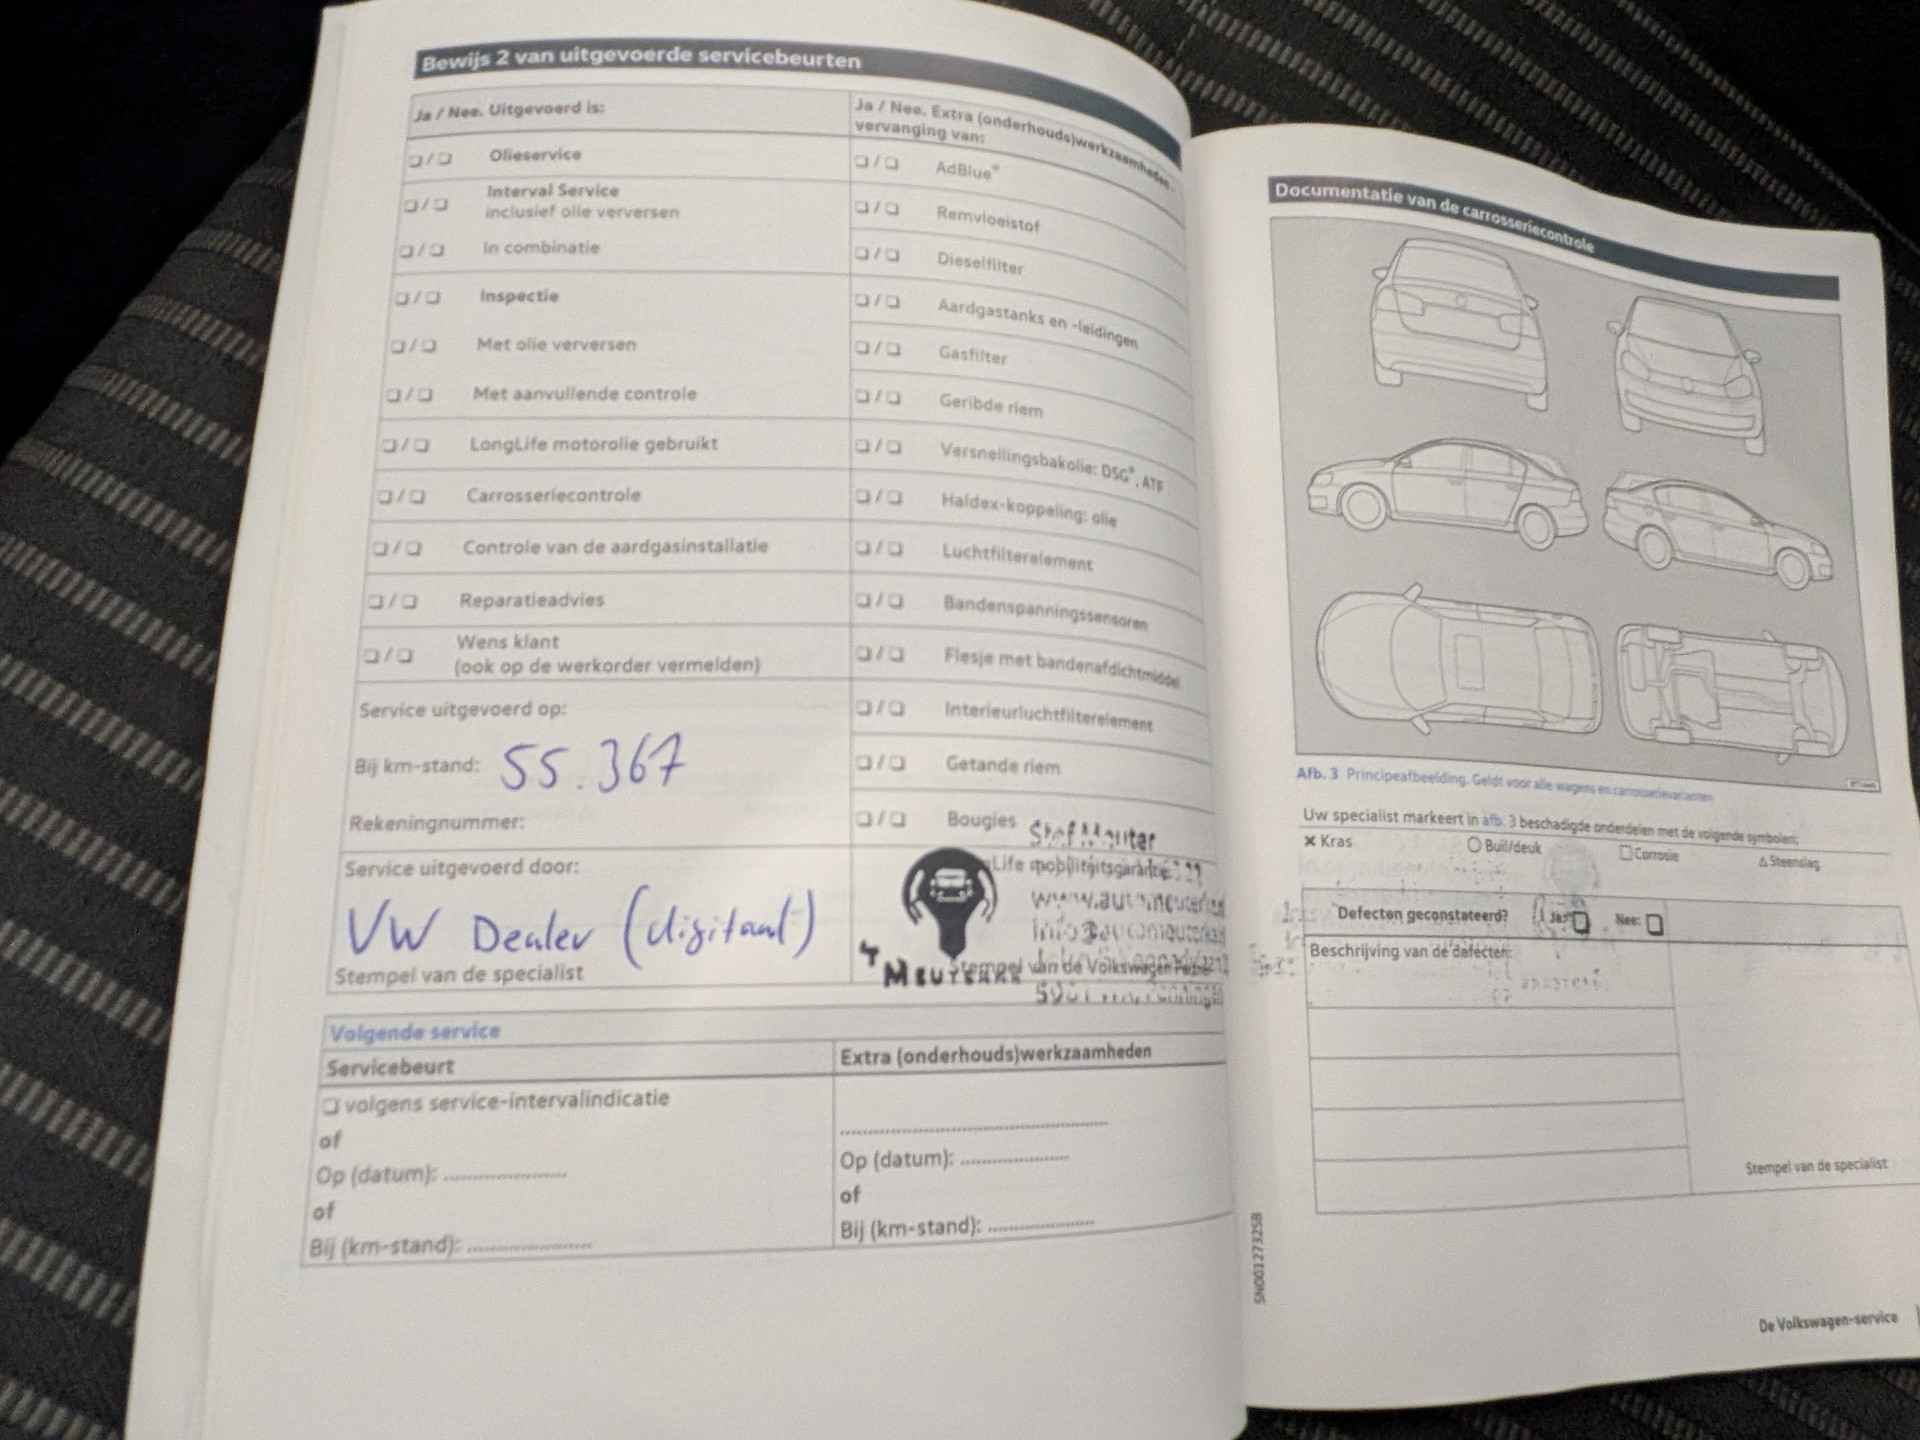 Bewijs 2 van uitgevoerde servicebeurten
Ja / Nee. Uitgevoerd is:
❑ / ❑ Olieservice
❑ / ❑ Interval Service
inclusief olie verversen
❑ / ❑ In combinatie
❑ / ❑ Inspectie
❑ / ❑ Met olie verversen
❑ / ❑ Met aanvullende controle
❑ / ❑ LongLife motorolie gebruikt
❑ / ❑ Carrosseriecontrole
❑ / ❑ Controle van de aardgasinstallatie
❑ / ❑ Reparatieadvies
❑ / ❑ Wens klant
(ook op de werkorder vermelden)
Service uitgevoerd op:
Bij km-stand: 55.367
Rekeningnummer:
Service uitgevoerd door:
VW Dealer (digitaal)
Stempel van de specialist
Ja / Nee. Extra (onderhouds)werkzaamheden,
vervanging van:
❑ / ❑ AdBlue®
❑ / ❑ Remvloeistof
❑ / ❑ Dieselfilter
❑ / ❑ Aardgastanks en -leidingen
❑ / ❑ Gasfilter
❑ / ❑ Geribde riem
❑ / ❑ Versnellingsbakolie: DSG®, ATF
❑ / ❑ Haldex-koppeling: olie
❑ / ❑ Luchtfilterelement
❑ / ❑ Bandenspanningssensoren
❑ / ❑ Flesje met bandenafdichtmiddel
❑ / ❑ Interieurluchtfilterelement
❑ / ❑ Getande riem
❑ / ❑ Bougies
Stef Meuter
Life mobiliteitsgarantie
Stempel van de Volkswagen Partner
Volgende service
Servicebeurt
❑ volgens service-intervalindicatie
of
Op (datum): ......................
of
Bij (km-stand): ......................
Extra (onderhouds)werkzaamheden
Op (datum): ......................
of
Bij (km-stand): ......................
Documentatie van de carrosseriecontrole
Afb. 3 Principeafbeelding. Geldt voor alle wagens en carrosserievarianten
Uw specialist markeert in afb. 3 beschadigde onderdelen met de volgende symbolen:
✕ Kras ○ Buil/deuk □ Corrosie △ Steenslag
Defecten geconstateerd? Ja: ❑ Nee: ❑
Beschrijving van de defecten:
Stempel van de specialist
SN001273258
De Volkswagen-service